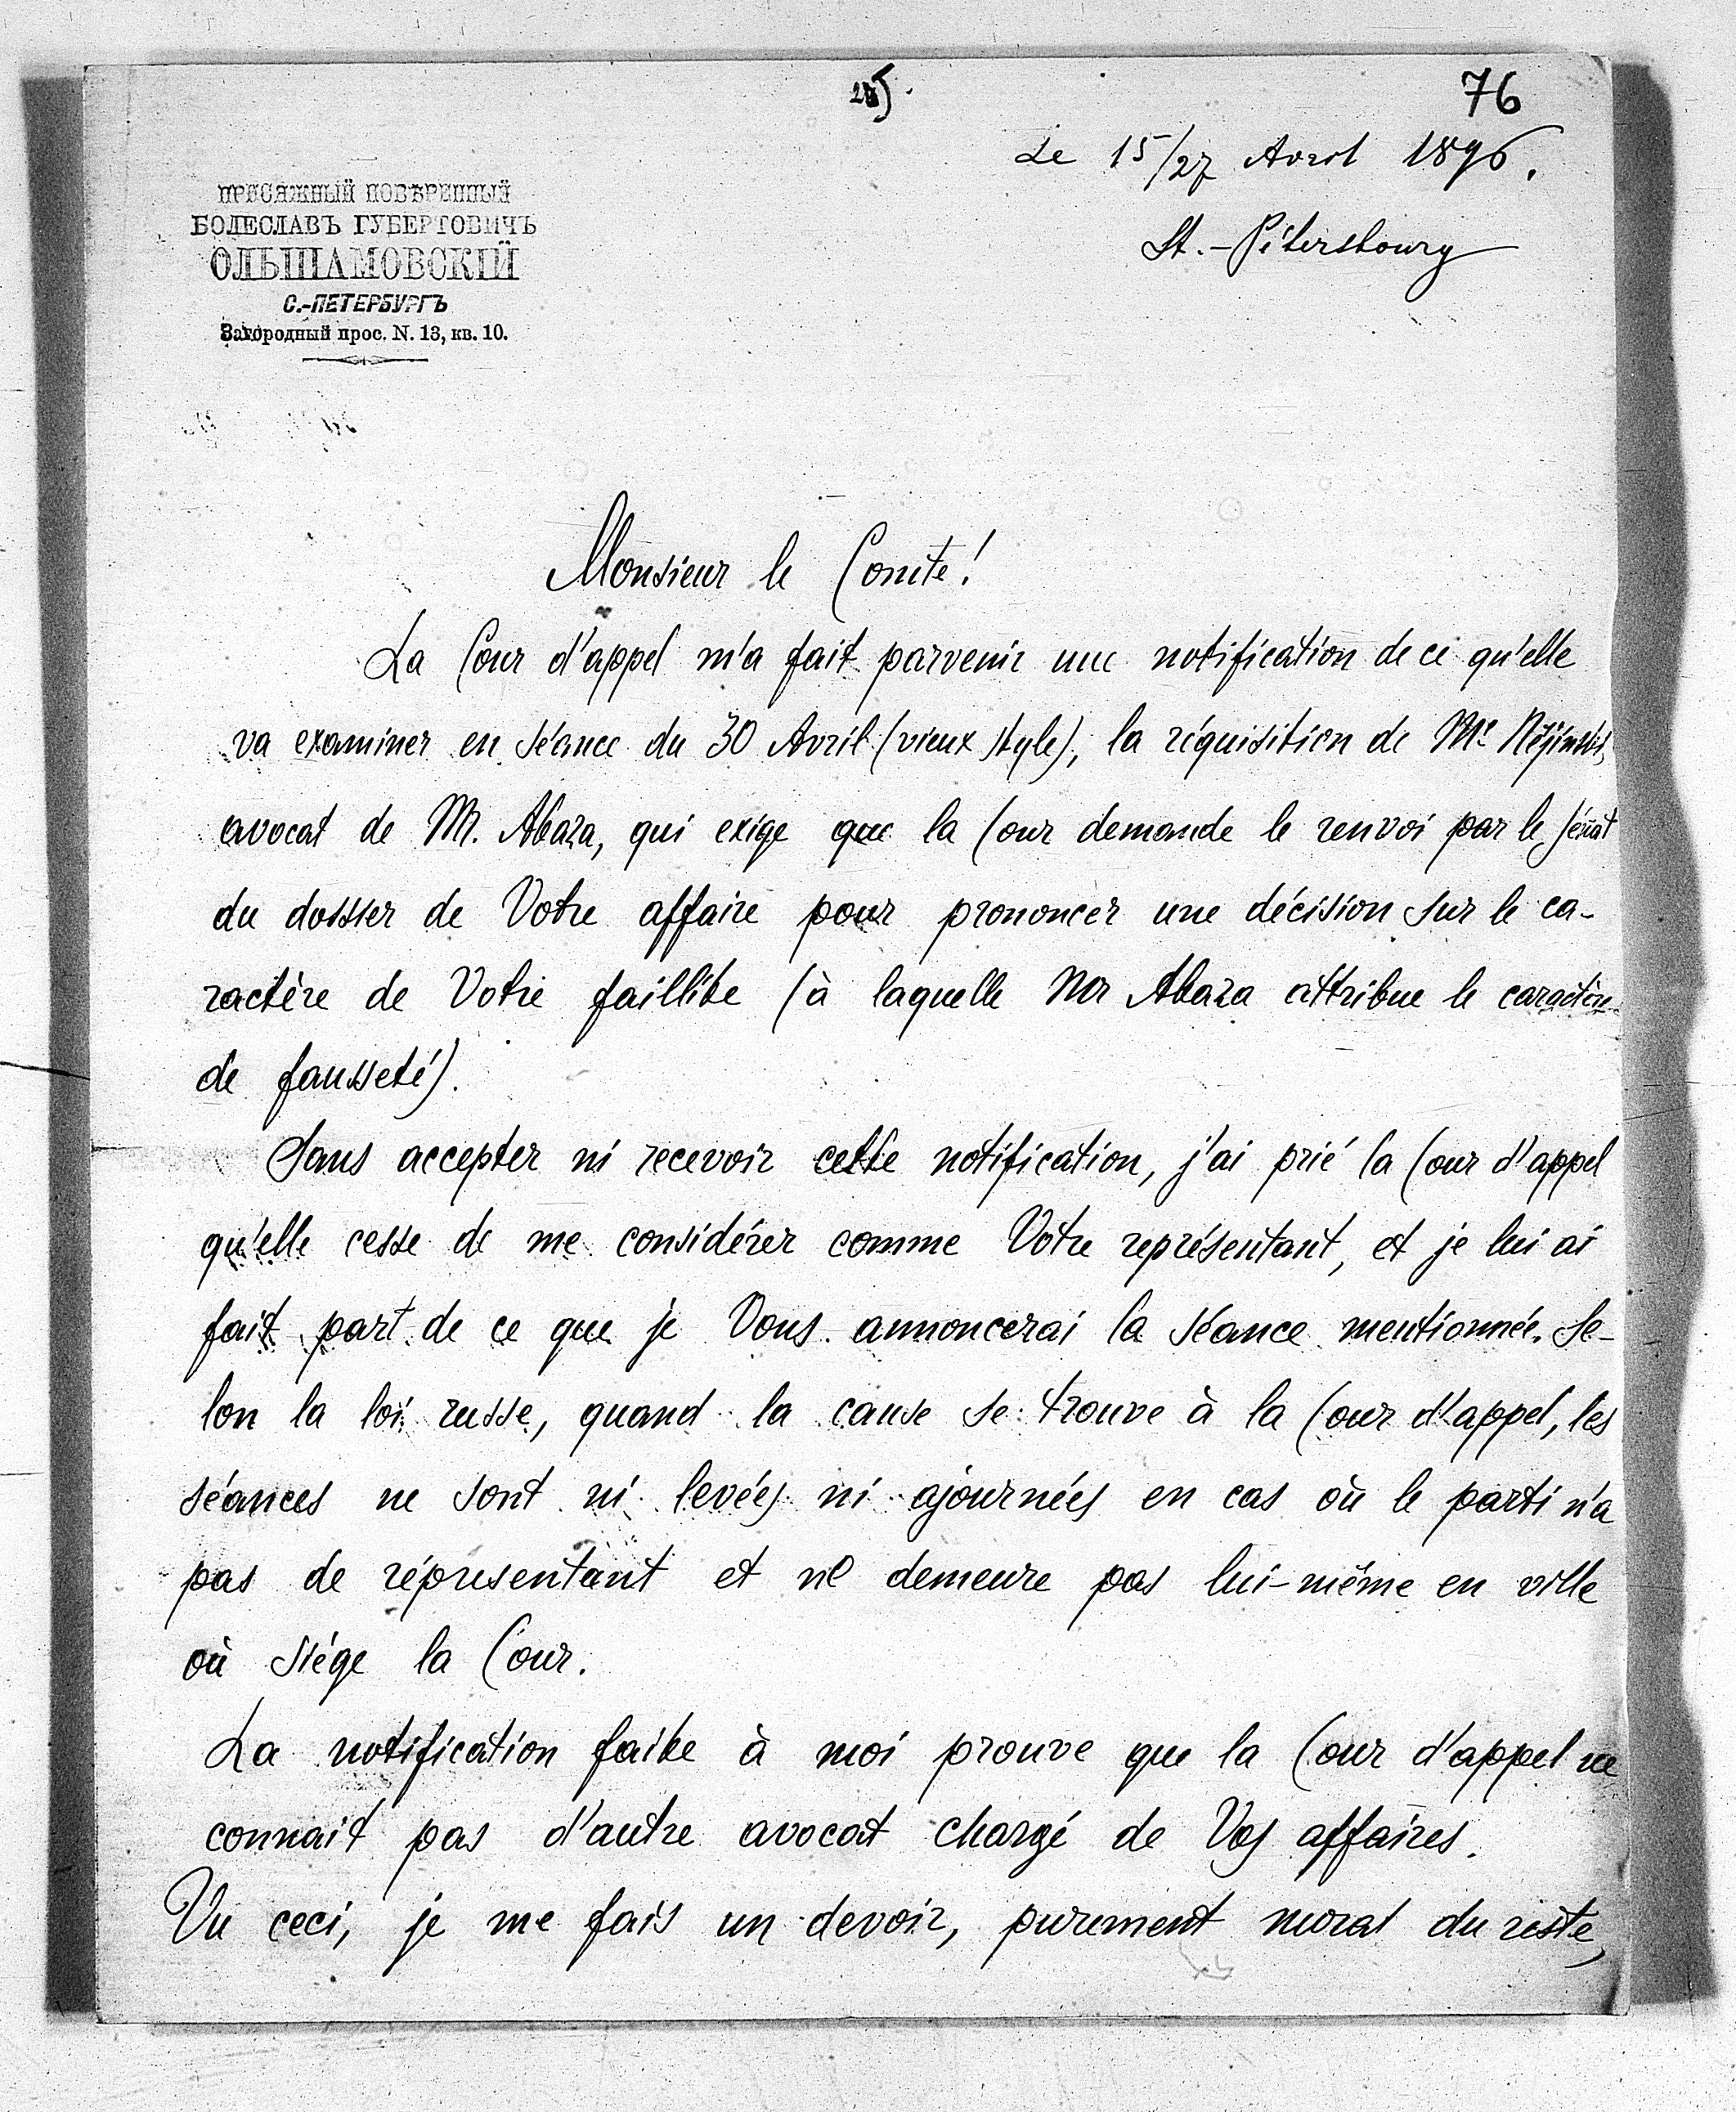 76
Le 15/27 Avril 1896.
St.-Pétersbourg
ПРИСЯЖНЫЙ ПОВѢРЕННЫЙ
БОЛЕСЛАВЪ ГУБЕРТОВИЧЪ
ОЛЬШАМОВСКІЙ
С.-ПЕТЕРБУРГЪ
Загородный прос. N. 13, кв. 10.
Monsieur le Comte!
La Cour d'appel m'a fait parvenir une notification de ce qu'elle
va examiner en séance du 30 Avril (vieux style), la réquisition de Mr
avocat de M. Abaza, qui exige que la Cour demande le renvoi par le Sénat
du dossier de Votre affaire pour prononcer une décision sur le ca-
ractère de Votre faillite (à laquelle Mr Abaza attribue le caractère
de fausseté).
Sans accepter ni recevoir cette notification, j'ai prié la Cour d'appel
qu'elle cesse de me considérer comme Votre représentant, et je lui ai
fait part de ce que je Vous annoncerai la séance mentionnée. Se-
lon la loi russe, quand la cause se trouve à la Cour d'appel, les
séances ne sont ni levées ni ajournées en cas où le parti n'a
pas de réprésentant et ne demeure pas lui-même en ville
où siége la Cour.
La notification faite à moi prouve que la Cour d'appel ne
connait pas d'autre avocat chargé de Vos affaires.
Vu ceci, je me fais un devoir, purement moral du reste,